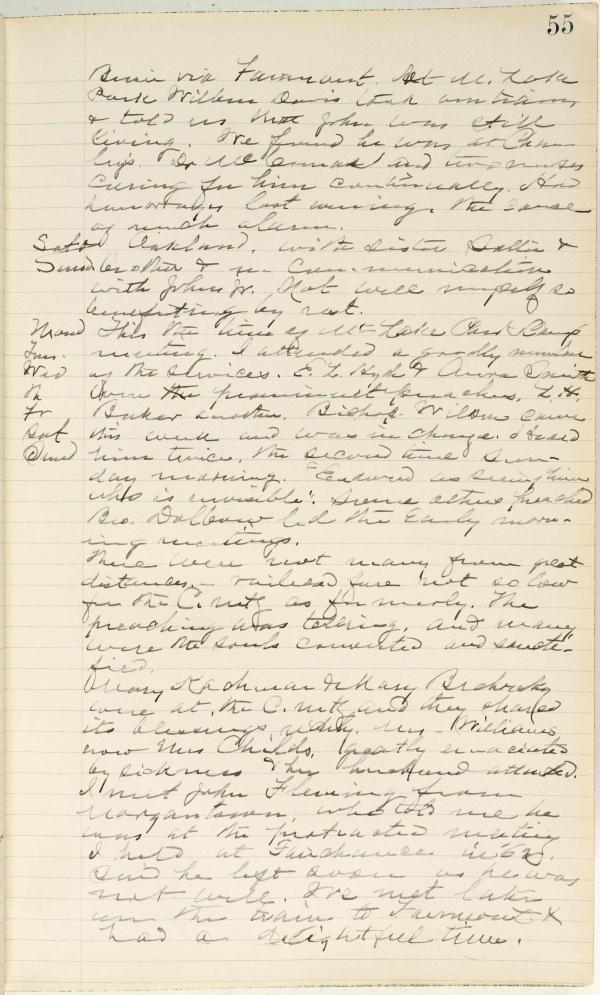 55
via Fairmont. At M. Lake
Park Wilbur Davis took our train,
& told us that John was still
living. We found he was at Char-
ley's. Dr. and two nurses
caring for him continually. Had
hemorrhages last evening. The cause
of much alarm.
Sat Oakland. with sister &
Sund brother & in communication
with John Jr. Not well myself so
benefiting by rest.
Mond This the time of Mt Lake Park Camp
Tues. meeting. I attended a goodly number
Wed of the services. E. L. Hyde & Aura Smith
Th were the prominent preachers. L. H.
Fr Baker another. Bishop Wilson came
Sat this week and was in charge. Heard
Sund him twice, the second time Sun-
day morning. "Endured as seeing him
who is invisible". Some others preached
Bro. led the Early morn-
ing meetings.
There were not many from great
distances, – railroad fare not so low
for the C. mtg as formerly. The
preaching was telling, and many
were the souls converted and sancti-
fied.
Mary & Mary
were at the C. mtg and they shared
its blessings richly. Williams,
now Mrs Childs, greatly emaciated
by sickness & her husband attended.
I met John Fleming from
Morgantown, who told me he
was at the protracted meeting
I held at Fairchance in
Said he left soon as he was
not well. We met later
on the train to Fairmont &
had a delightful time.